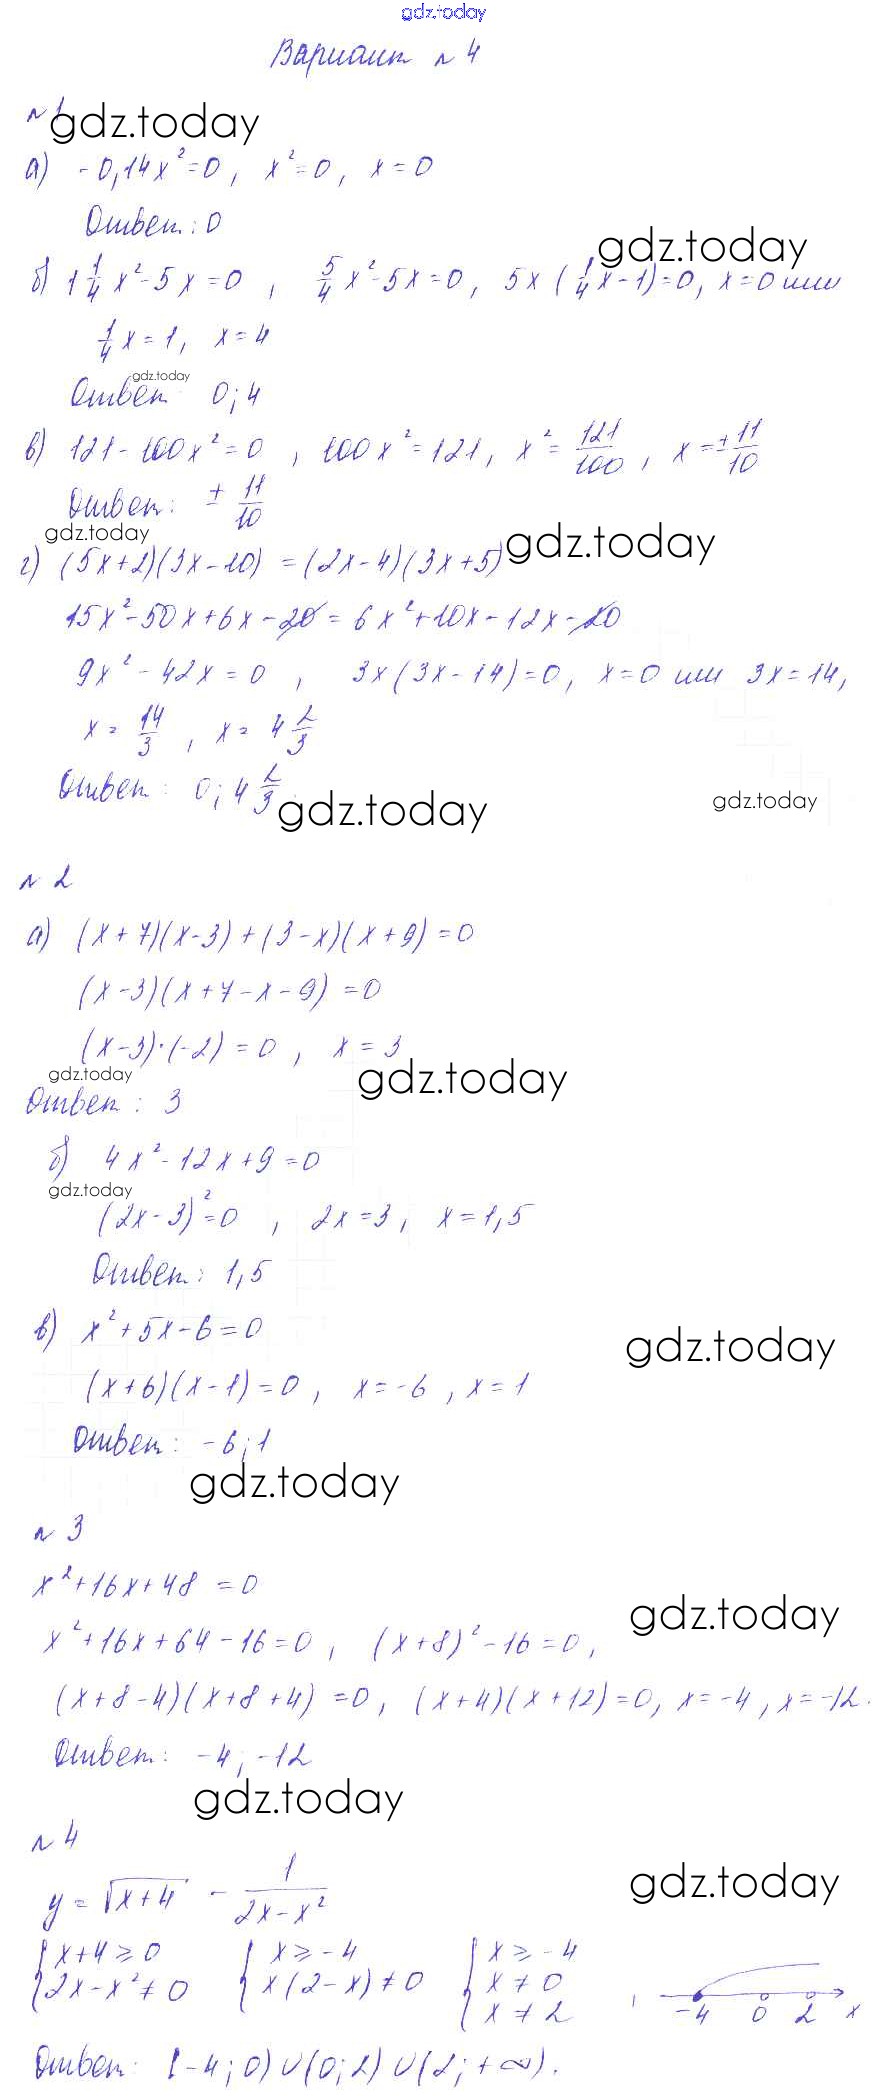 gdz.today
Вариант n 4
n 1 gdz.today
а) -0,14x²=0, x²=0, x=0
Ответ: 0
gdz.today
б) 1 1/4 x²-5x=0, 5/4 x²-5x=0, 5x(1/4 x-1)=0, x=0 или
1/4 x=1, x=4
gdz.today
Ответ 0;4
в) 121-100x²=0, 100x²=121, x²=121/100, x=±11/10
Ответ: ±11/10
gdz.today gdz.today
г) (5x+2)(3x-10)=(2x-4)(3x+5)
15x²-50x+6x-20=6x²+10x-12x-20
9x²-42x=0, 3x(3x-14)=0, x=0 или 3x=14,
x=14/3, x=4 2/3
Ответ: 0;4 2/3
gdz.today gdz.today
n 2
а) (x+7)(x-3)+(3-x)(x+9)=0
(x-3)(x+7-x-9)=0
(x-3)·(-2)=0, x=3
gdz.today gdz.today
Ответ: 3
б) 4x²-12x+9=0
gdz.today
(2x-3)²=0, 2x=3, x=1,5
Ответ: 1,5
в) x²+5x-6=0
gdz.today
(x+6)(x-1)=0, x=-6, x=1
Ответ: -6;1
gdz.today
n 3
x²+16x+48=0
gdz.today
x²+16x+64-16=0, (x+8)²-16=0,
(x+8-4)(x+8+4)=0, (x+4)(x+12)=0, x=-4, x=-12.
Ответ: -4;-12
gdz.today
n 4
gdz.today
y=√x+4 - 1/(2x-x²)
{x+4≥0 {x≥-4 {x≥-4
2x-x²≠0 x(2-x)≠0 x≠0
x≠2
, -4 0 2 x
Ответ: [-4;0)∪(0;2)∪(2;+∞).